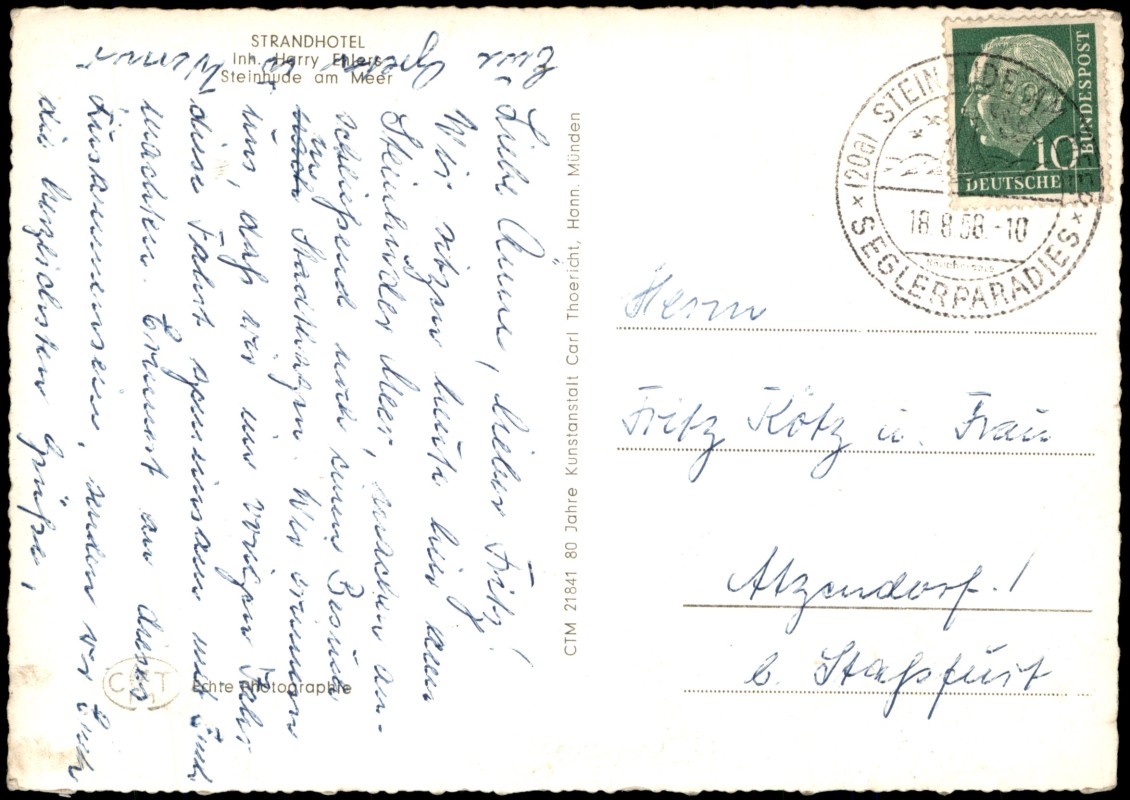 STRANDHOTEL
Inh. Harry Ehlers
Steinhude am Meer
Liebe Anne, lieber Fritz!
Wir sitzen heute hier am
Steinhuder Meer, machen an-
schließend noch einen Besuch
in Stadthagen. Wir erinnern
uns, daß wir im vorigen Jahr
diese Fahrt gemeinsam mit Euch
machten. Erinnert an dieses
Zusammensein, senden wir Euch
die herzlichsten Grüße,
Eure
Werner
CTM 21841 80 Jahre Kunstanstalt Carl Thoericht, Hann. Münden
Echte Photographie
(20a) STEINHUDE
18.8.58.-10
SEGLERPARADIES
10
DEUTSCHE
BUNDESPOST
Herrn
Fritz Kötz u. Frau
Atzendorf.
b. Staßfurt